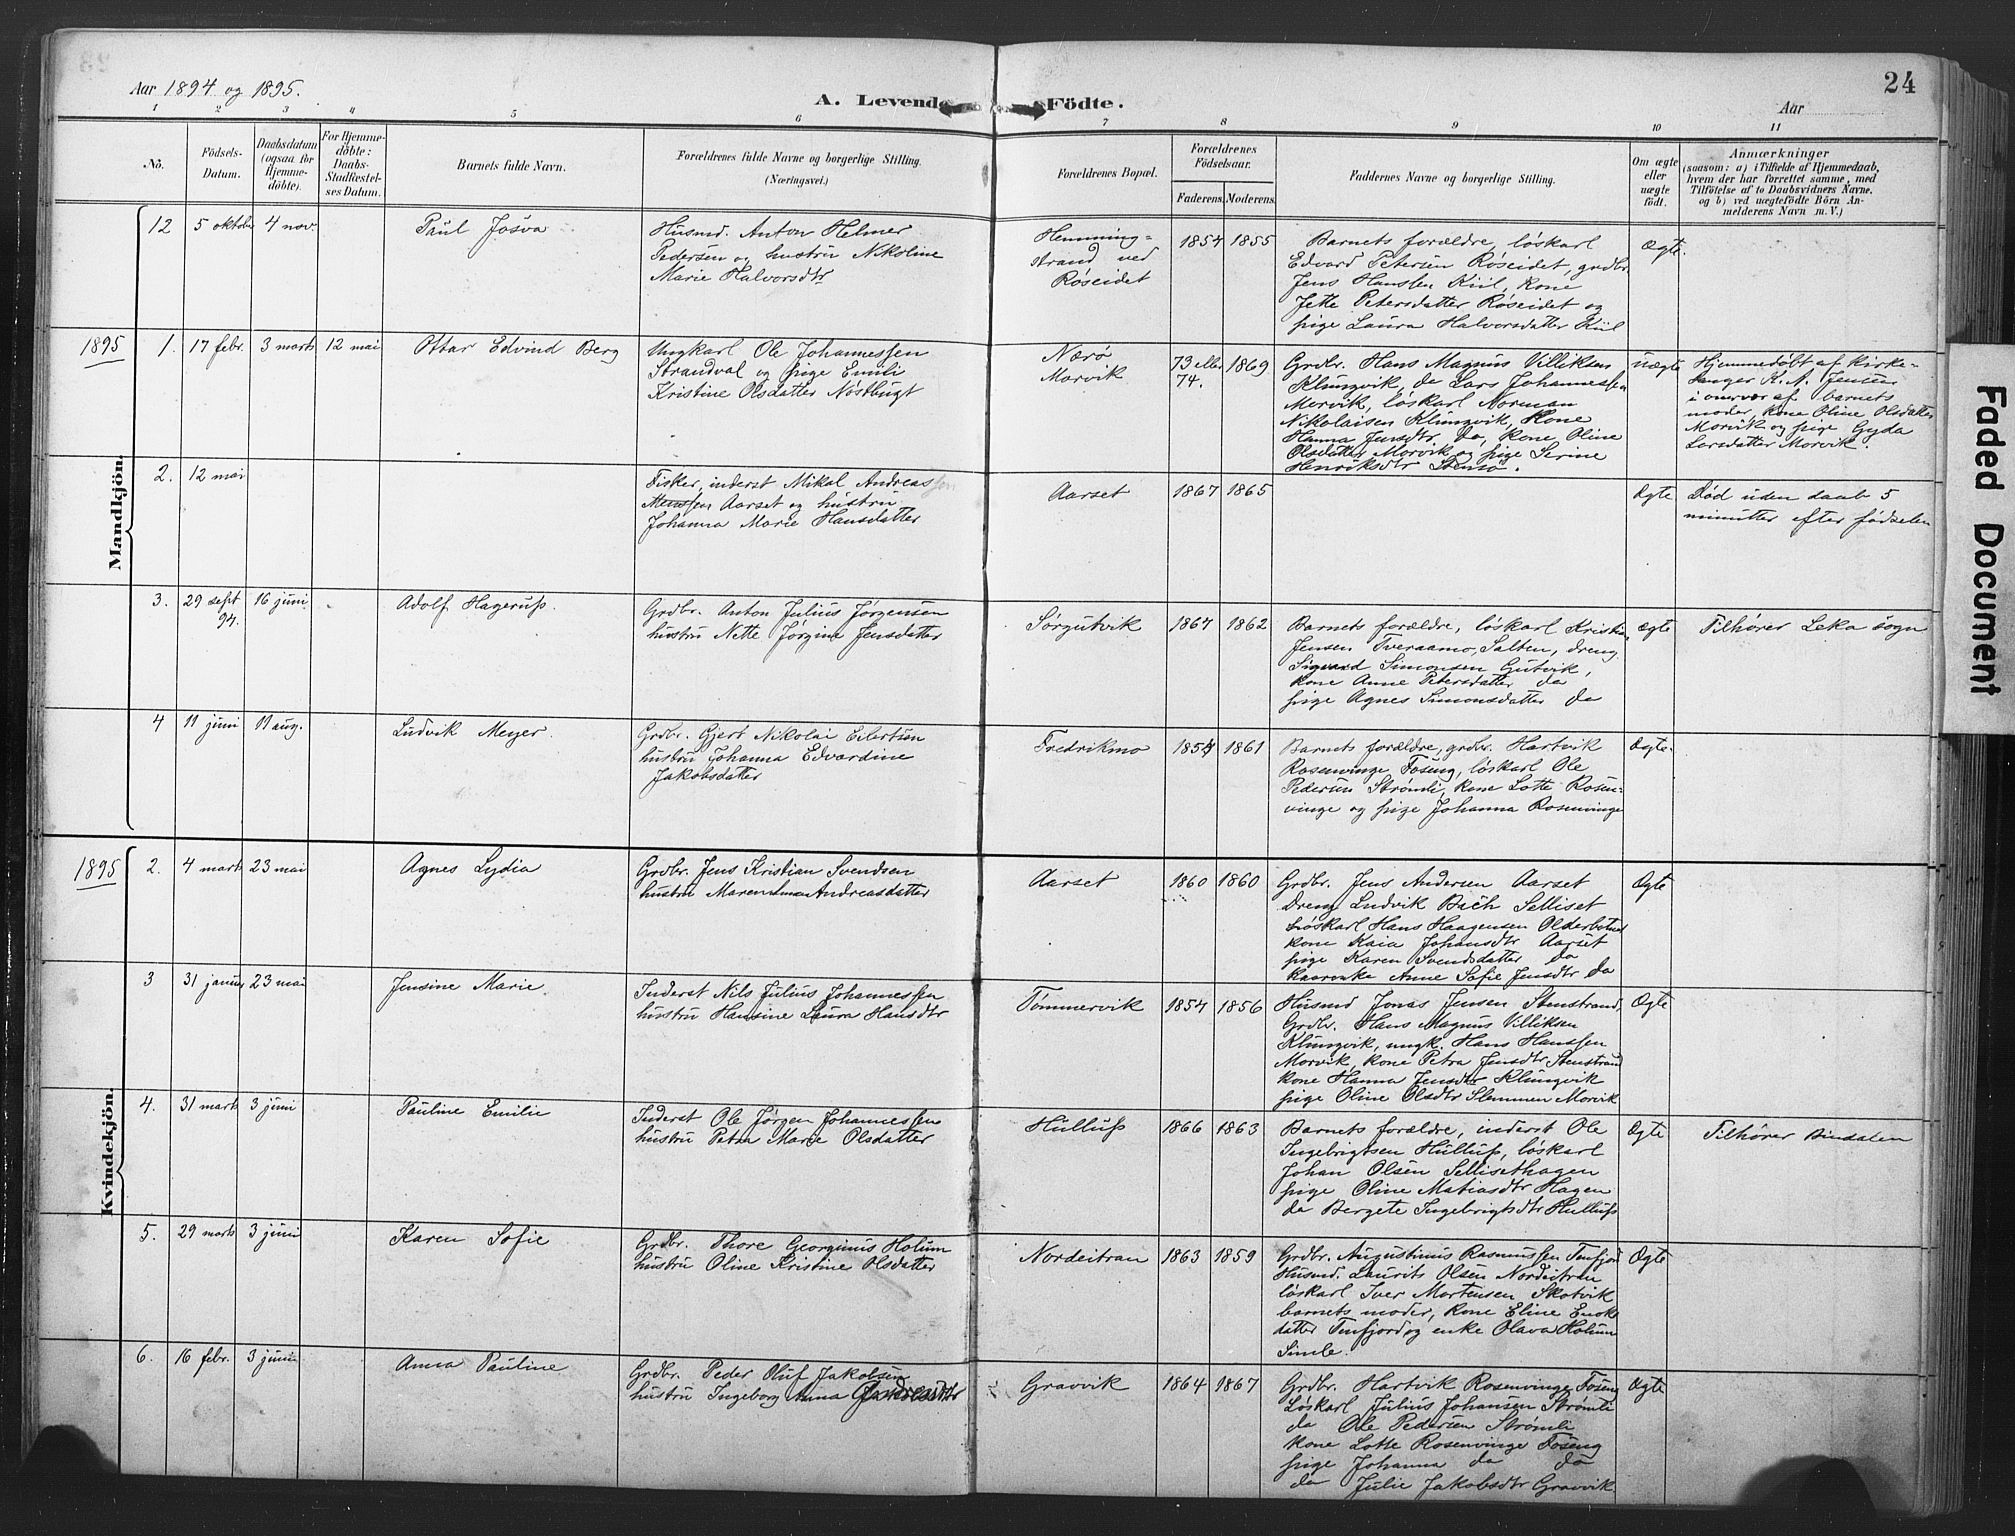 Aar 1894 og 1895.
A. Levende Födte.
Aar
24
1 2 3 4 5 6 7 8 9 10 11
No.
Födsels-
Datum.
Daabsdatum
(ogsaa for
Hjemme-
döbte).
For Hjemme-
döbte:
Daabs-
Stadfæstel-
ses Datum.
Barnets fulde Navn.
Forældrenes fulde Navne og borgerlige Stilling.
(Næringsvei.)
Forældrenes Bopæl.
Forældrenes
Födselsaar.
Faderens. Moderens.
Faddernes Navne og borgerlige Stilling.
Om ægte
eller
uægte
födt.
Anmærkninger
(saasom: a) i Tilfælde af Hjemmedaab,
hvem der har forrettet samme, med
Tilföielse af to Daabsvidners Navne.
og b) ved uægtefödte Börn An-
melderens Navn m. V.)
Mandkjön.
12 5 oktober 4 nov.
Paul Josva
Husmd. Anton Helmer
Pedersen og hustru Nikoline
Marie Halvorsdtr
Hemming-
strand ved
Røseidet
1854 1855
Barnets forældre, løskarl
Edvard Petersen Røseidet, grdbr.
Jens Hanssen Kiil, kone
Jette Petersdatter Røseidet og
pige Laura Halvorsdatter Kiil
ægte.
1895 1. 17 febr. 3 marts 12 mai
Ottar Edvind Berg
Ungkarl Ole Johannessen
Strandval og pige Emili
Kristine Olsdatter Nøstbugt
Nærø
Morvik
73 eller
74. 1869
Grdbr. Hans Magnus Villiksen
Klungvik, da Lars Johannessen
Morvik, løskarl Norman
Nikolaisen Klungvik, Kone
Hanna Jensdtr. da, kone Oline
Olsdatter Morvik og pige Serine
Henriksdtr Stensø.
uægte
Hjemmedøbt af kirke-
sanger K. A. Jensen
i overvær af barnets
moder, kone Oline Olsdatter
Morvik og pige Gyda
Larsdatter Morvik.
2. 12 mai
Fisker, inderst Mikal Andreassen
Aarset og hustru
Johanna Marie Hansdatter
Aarset
1867 1865
Ægte
Død uden daab 5
minutter efter fødselen
3. 29 sept 94. 16 juni
Adolf Hagerup.
Grdbr. Anton Julius Jørgensen
hustru Nette Jørgine Jensdatter
Sørgutvik
1867 1862
Barnets forældre, løskarl Kristian
Jensen Tveraamo, Salten, dreng
Sigvard Simonsen Gutvik,
kone Anne Petersdatter da
pige Agnes Simonsdatter da
ægte
Tilhører Leka sogn
4 11 juni 11 aug.
Ludvik Meyer.
Grdbr. Gjert Nikolai Eilertsen
hustru Johanna Edvardine
Jakobsdatter
Fredrikmo
1854 1861
Barnets forældre, grdbr. Hartvik
Rosenvinge Foseng, løskarl Ole
Pedersen Strømli, kone Lotte Rosen-
vinge og pige Johanna Rosenvinge
Ægte.
Kvindekjön.
1895 2. 4 marts 23 mai
Agnes Lydia
Grdbr. Jens Kristian Svendsen
hustru Maren Anna Andreasdatter
Aarset
1860 1860
Grdbr. Jens Andersen Aarset
Dreng Ludvik Bach Selliset
Løskarl Hans Haagensen Olderbotnet
kone Kaia Johansdtr Aarset
pige Karen Svendsdatter Da
Anne Sofie Jensdtr Da
Ægte
3 31 januar 23 mai
Jensine Marie.
Inderst Nils Julius Johannessen
hustru Hansine Laura Hansdtr
Tømmervik
1854 1856
Husmd Jonas Jensen Stenstrand,
Grdbr. Hans Magnus Villiksen
Klungvik, ungk. Hans Hanssen
Morvik, kone Petra Jensdtr Stenstrand
kone Hanna Jensdtr Klungvik
pige Oline Olsdtr Slemmen Morvik
Ægte
4. 31 marts 3 juni
Pauline Emilie
Inderst Ole Jørgen Johannessen
hustru Petra Marie Olsdatter
Hullup
1866 1863
Barnets forældre, inderst Ole
Ingebrigtsen Hullup, løskarl
Johan Olsen Sellisethagen
pige Oline Matiasdtr Hagen
da Bergete Ingebrigtsdtr Hullup
Ægte
Tilhører Bindalen
5. 29 marts 3 juni
Karen Sofie
Grdbr. Thore Georginus Holum
hustru Oline Kristine Olsdatter
Nordeitran
1863 1859
Grdbr. Augustinus Rasmussen Tenfjord
Husmd. Laurits Olsen Nordeitran
løskarl Iver Mortensen Skotvik
barnets moder, kone Eline Enoks
datter Tenfjord og enke Olava Holum
Simle.
Ægte
6. 16 febr. 3 juni
Anna Pauline
Grdbr. Peder Oluf Jakobsen
hustru Ingeborg Anna Andreasdtr
Gravvik
1864 1867
Grdbr. Hartvik Rosenvinge Foseng
Løskarl Julius Johansen Strømli
da Ole Pedersen Strømli
kone Lotte Rosenvinge Foseng
pige Johanna da da
da Julie Jakobsdtr Gravvik
Ægte
Faded Document